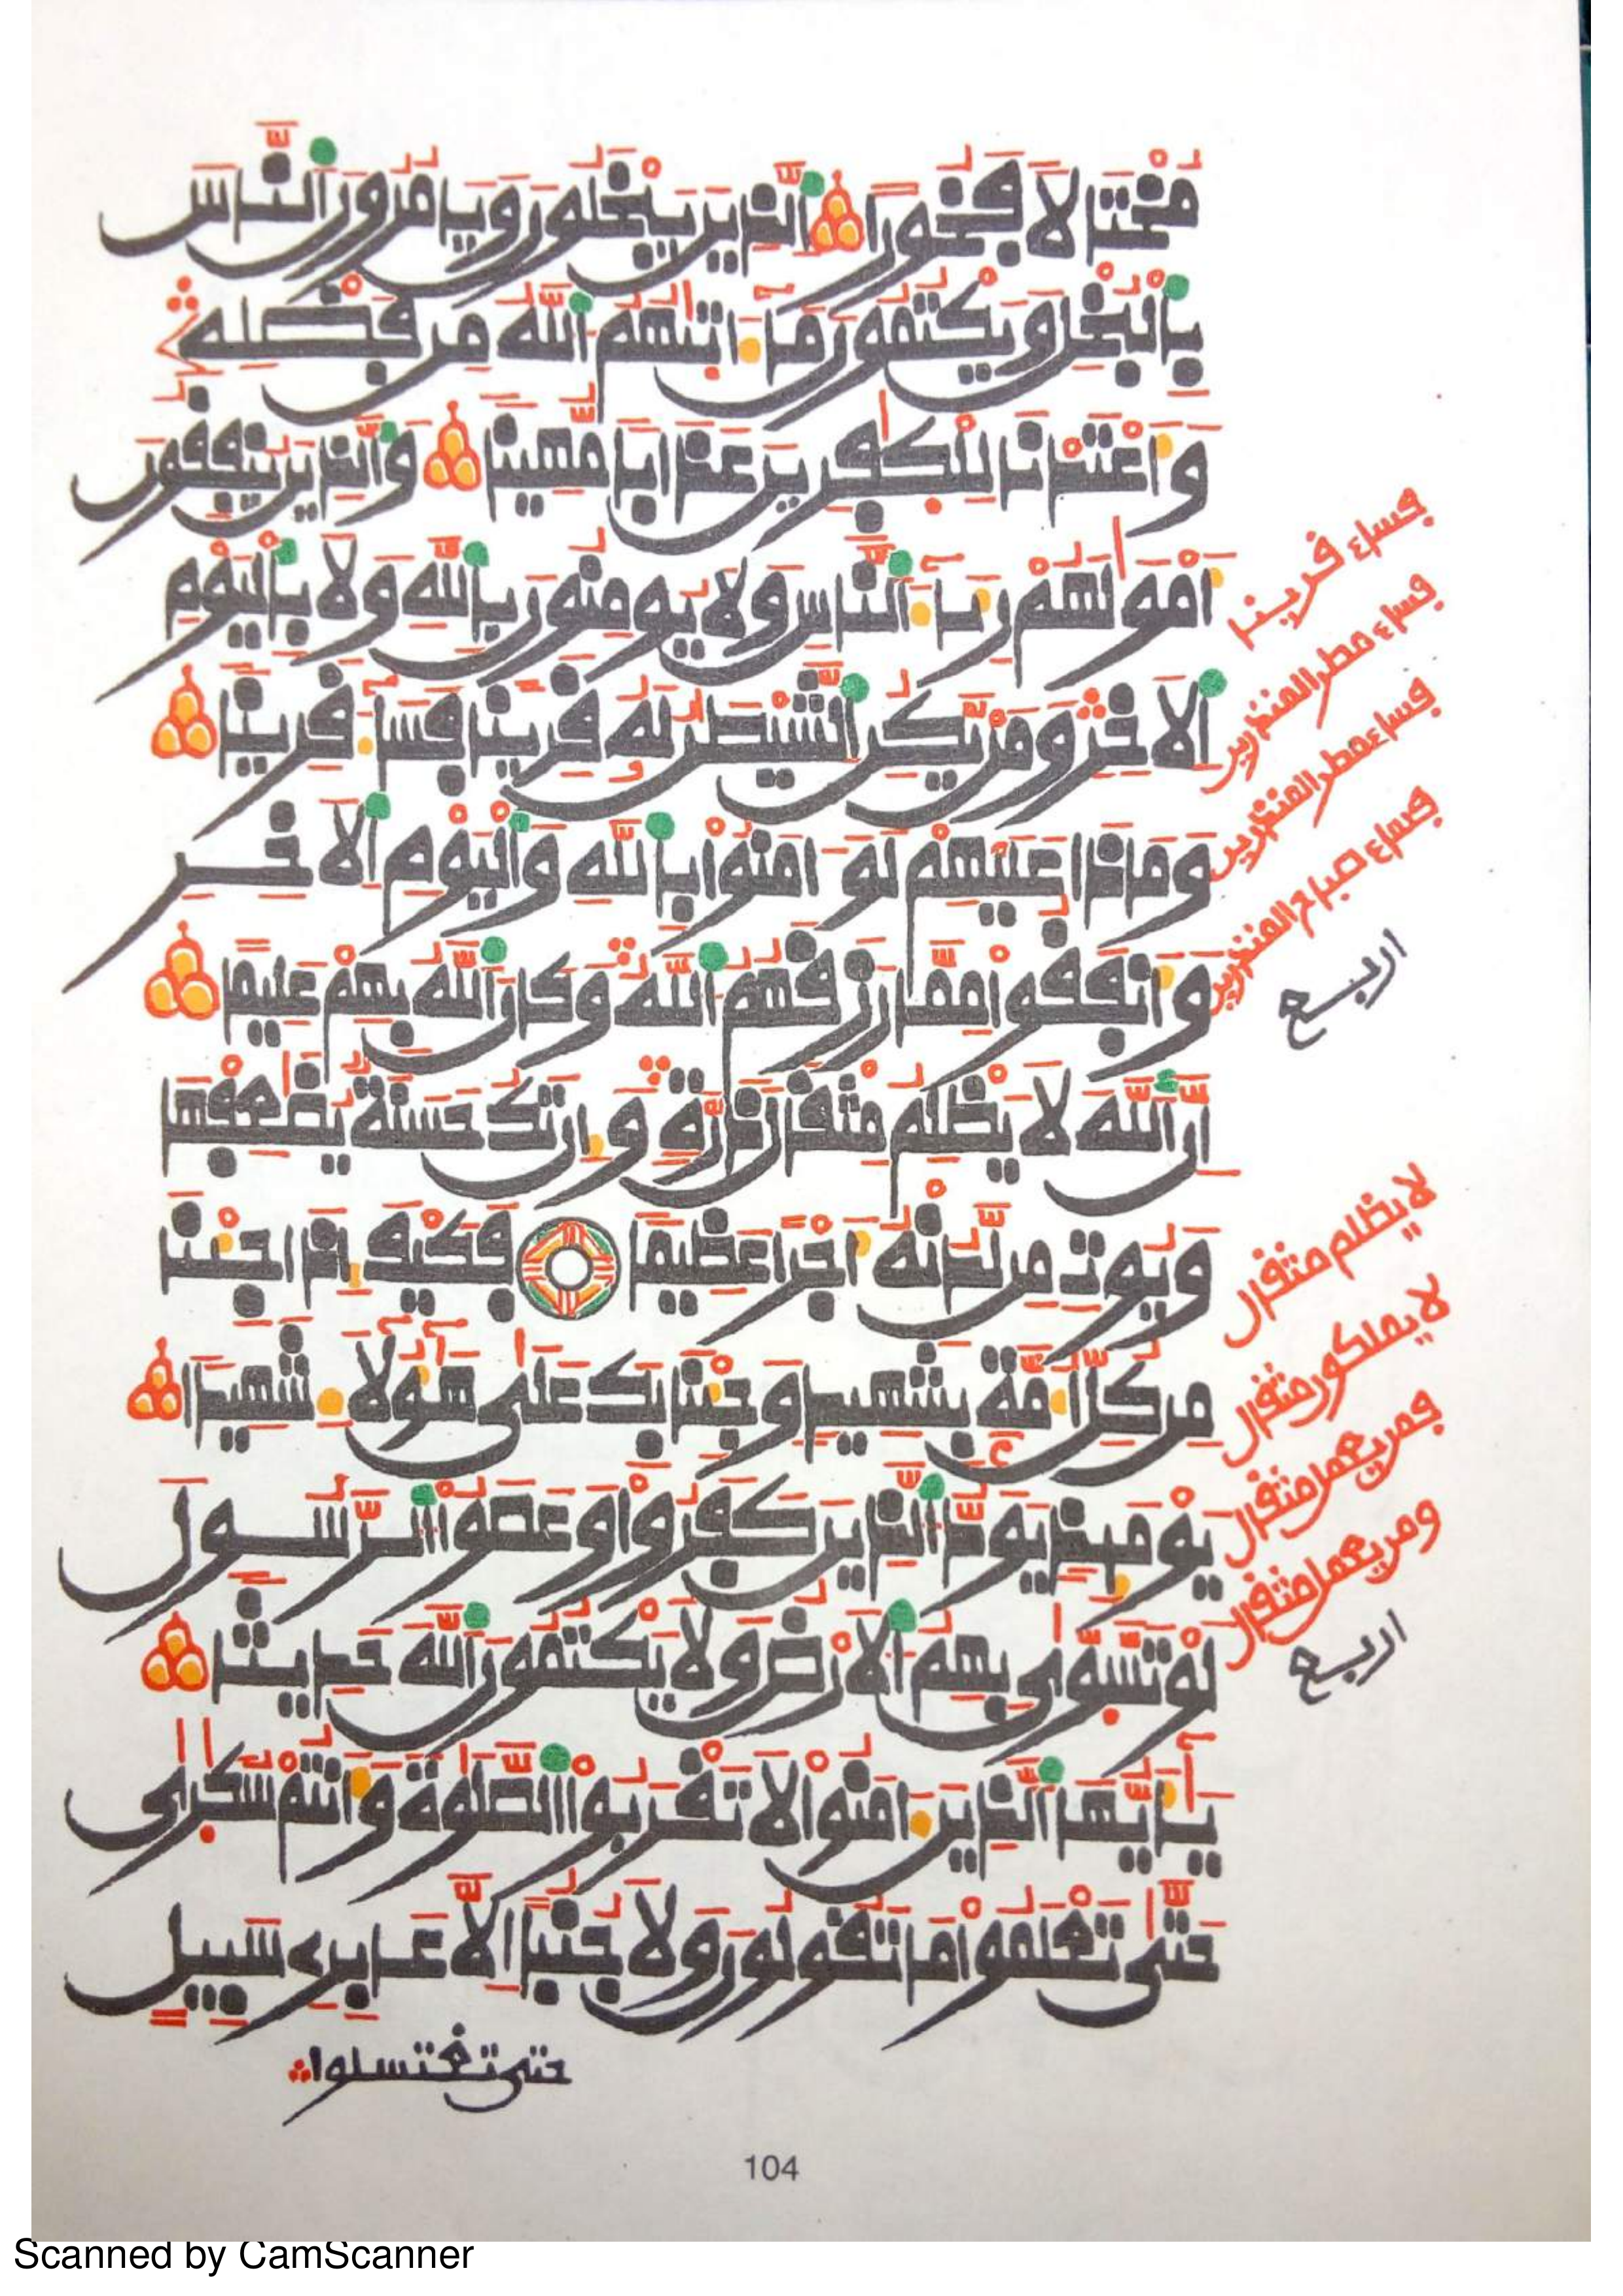 مُخْتَالًا فَخُورًا اَ۬لذِينَ يَبْخَلُونَ وَيَامُرُونَ اَ۬لنَّاسَ
بِالْبُخْلِ وَيَكْتُمُونَ مَآ ءَاتَىٰهُمُ اُ۬للَّهُ مِن فَضْلِهِۦ
وَأَعْتَدْنَا لِلْكَٰفِرِينَ عَذَابًا مُّهِينًا وَالذِينَ يُنفِقُونَ
أَمْوَٰلَهُمْ رِئَآءَ اَ۬لنَّاسِ وَلَا يُومِنُونَ بِاللَّهِ وَلَا بِالْيَوْمِ
اِ۬لَاخِرِ وَمَنْ يَّكُنِ اِ۬لشَّيْطَٰنُ لَهُۥ قَرِينًا فَسَآءَ قَرِينًا
وَمَاذَا عَلَيْهِمْ لَوَ ـامَنُواْ بِاللَّهِ وَالْيَوْمِ اِ۬لَاخِرِ
وَأَنفَقُواْ مِمَّا رَزَقَهُمُ اُ۬للَّهُ وَكَانَ اَ۬للَّهُ بِهِمْ عَلِيمًا
إِنَّ اَ۬للَّهَ لَا يَظْلِمُ مِثْقَالَ ذَرَّةٍ وَإِن تَكُ حَسَنَةٌ يُضَٰعِفْهَا
وَيُوتِ مِن لَّدُنْهُ أَجْرًا عَظِيمًا فَكَيْفَ إِذَا جِئْنَا
مِن كُلِّ أُمَّةٍ بِشَهِيدٍ وَجِئْنَا بِكَ عَلَىٰ هَٰٓؤُلَآءِ شَهِيدًا
يَوْمَئِذٍ يَوَدُّ اُ۬لذِينَ كَفَرُواْ وَعَصَوُاْ اُ۬لرَّسُولَ
لَوْ تَسَّوَّىٰ بِهِمُ اُ۬لَارْضُ وَلَا يَكْتُمُونَ اَ۬للَّهَ حَدِيثًا
يَٰٓأَيُّهَا اَ۬لذِينَ ءَامَنُواْ لَا تَقْرَبُواْ اُ۬لصَّلَوٰةَ وَأَنتُمْ سُكَٰرَىٰ
حَتَّىٰ تَعْلَمُواْ مَا تَقُولُونَ وَلَا جُنُبًا اِلَّا عَابِرِے سَبِيلٍ
حتى تغتسلوا
فساء قرينا
فساء مطر المنذرين
فساء مطر المنذرين
فساء صباح المنذرين
اربع
لا يظلم مثقال
لا يملكون مثقال
فمن يعمل مثقال
ومن يعمل مثقال
اربع
104
Scanned by CamScanner